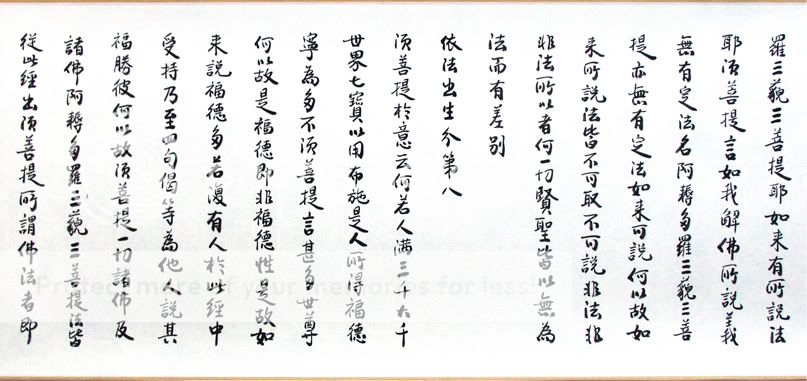 羅三藐三菩提耶如来有所說法
耶須菩提言如我解佛所說義
無有定法名阿耨多羅三藐三菩
提亦無有定法如来可說何以故如
来所說法皆不可取不可說非法非
非法所以者何一切賢聖皆以無為
法而有差別
依法出生分第八
須菩提於意云何若人滿三千大千
世界七寶以用布施是人所得福德
寧為多不須菩提言甚多世尊
何以故是福德即非福德性是故如
来說福德多若復有人於此經中
受持乃至四句偈等為他人說其
福勝彼何以故須菩提一切諸佛及
諸佛阿耨多羅三藐三菩提法皆
從此經出須菩提所謂佛法者即
Protect more of your memories for less!